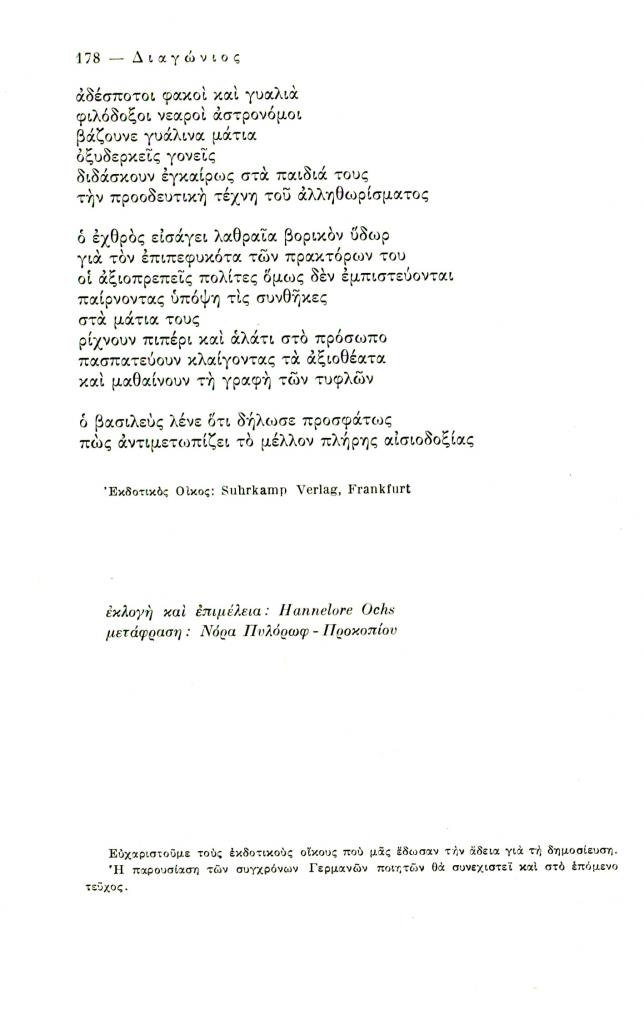 178 — Διαγώνιος
ἀδέσποτοι φακοὶ καὶ γυαλιὰ
φιλόδοξοι νεαροὶ ἀστρονόμοι
βάζουνε γυάλινα μάτια
ὀξυδερκεῖς γονεῖς
διδάσκουν ἐγκαίρως στὰ παιδιά τους
τὴν προοδευτικὴ τέχνη τοῦ ἀλληθωρίσματος
ὁ ἐχθρὸς εἰσάγει λαθραῖα βορικὸν ὕδωρ
γιὰ τὸν ἐπιπεφυκότα τῶν πρακτόρων του
οἱ ἀξιοπρεπεῖς πολίτες ὅμως δὲν ἐμπιστεύονται
παίρνοντας ὑπόψη τὶς συνθῆκες
στὰ μάτια τους
ρίχνουν πιπέρι καὶ ἁλάτι στὸ πρόσωπο
πασπατεύουν κλαίγοντας τὰ ἀξιοθέατα
καὶ μαθαίνουν τὴ γραφὴ τῶν τυφλῶν
ὁ βασιλεὺς λένε ὅτι δήλωσε προσφάτως
πὼς ἀντιμετωπίζει τὸ μέλλον πλήρης αἰσιοδοξίας
Ἐκδοτικὸς Οἶκος: Suhrkamp Verlag, Frankfurt
ἐκλογὴ καὶ ἐπιμέλεια: Hannelore Ochs
μετάφραση: Νόρα Πυλόρωφ - Προκοπίου
Εὐχαριστοῦμε τοὺς ἐκδοτικοὺς οἴκους ποὺ μᾶς ἔδωσαν τὴν ἄδεια γιὰ τὴ δημοσίευση.
Ἡ παρουσίαση τῶν συγχρόνων Γερμανῶν ποιητῶν θὰ συνεχιστεῖ καὶ στὸ ἑπόμενο
τεῦχος.